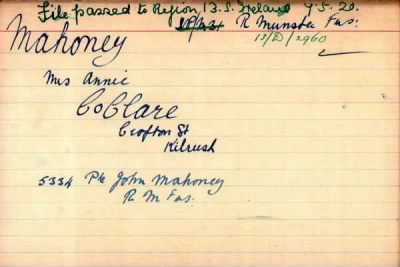 File passed to Region, 13. S. Ireland 9.5.20.
R Munster Fus:
13/D/2960
Mahoney
Mrs Annie
Co Clare
Crofton St
Kilrush
5334 Pte John Mahoney
R M Fus.